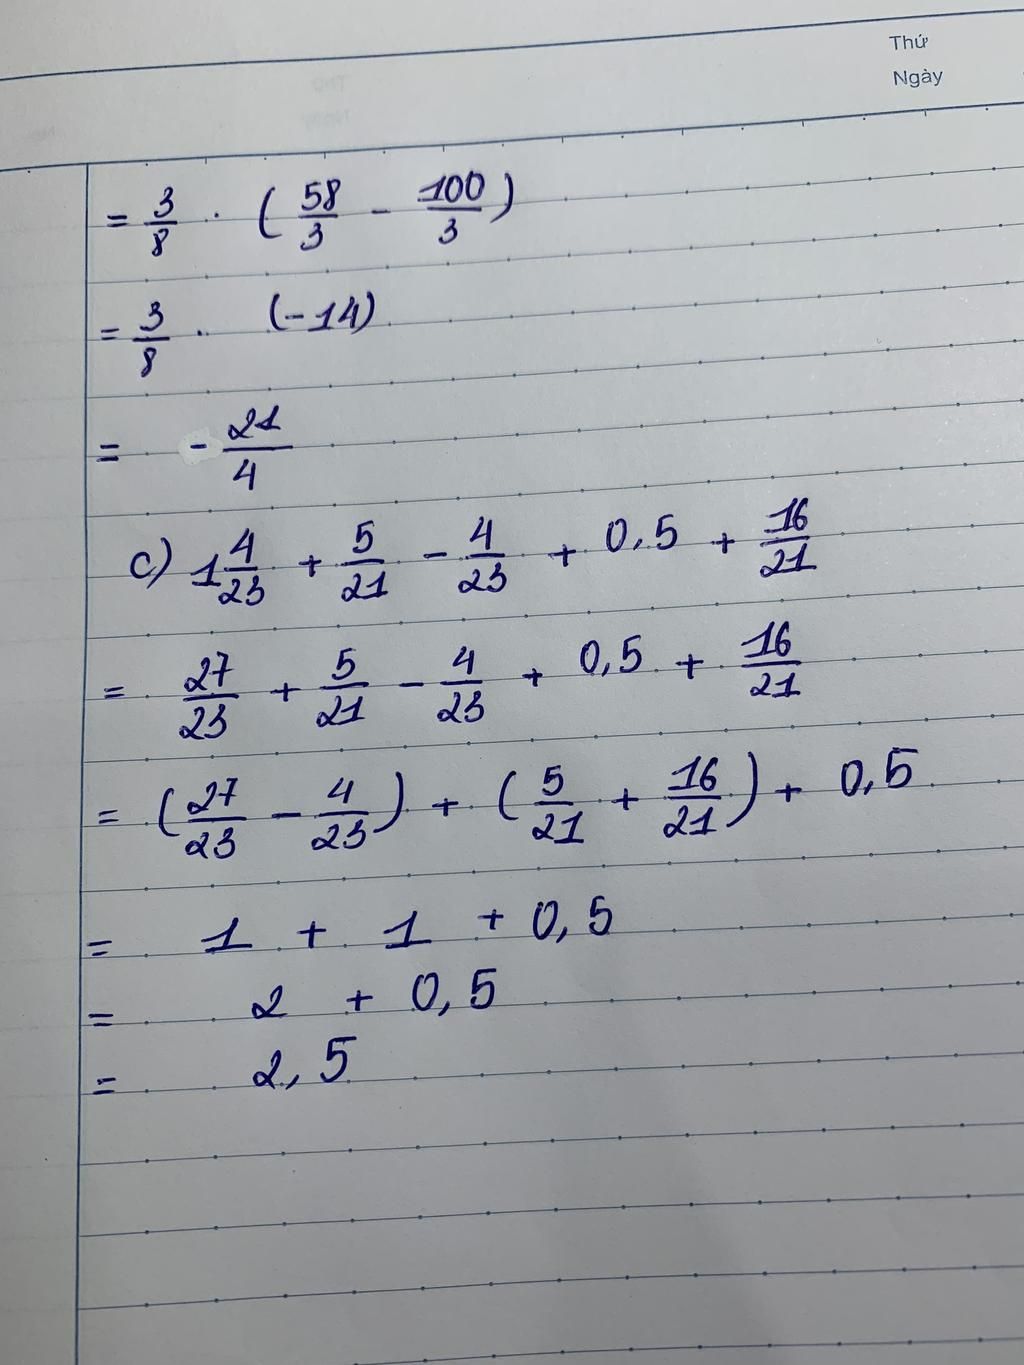 Thứ
Ngày
= 3/8 . (58/3 - 100/3)
= 3/8 . (-14)
= - 21/4
c) 1 4/23 + 5/21 - 4/23 + 0,5 + 16/21
= 27/23 + 5/21 - 4/23 + 0,5 + 16/21
= (27/23 - 4/23) + (5/21 + 16/21) + 0,5
= 1 + 1 + 0,5
= 2 + 0,5
= 2,5